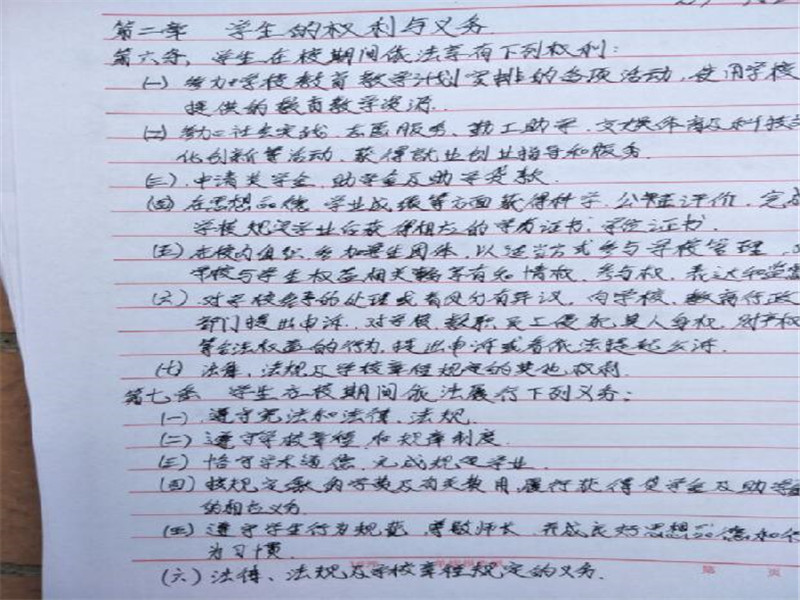 第二章 学生的权利与义务
第六条、学生在校期间依法享有下列权利：
(一) 参加学校教育教学计划安排的各项活动，使用学校
提供的教育教学资源.
(二) 参加社会实践、志愿服务、勤工助学、文娱体育及科技文
化创新等活动，获得就业创业指导和服务.
(三) 申请奖学金、助学金及助学贷款.
(四) 在思想品德、学业成绩等方面获得科学、公正评价，完成
学校规定学业后获得相应的学历证书、学位证书.
(五) 在校内组织、参加学生团体，以适当方式参与学校管理，
学校与学生权益相关事务享有知情权、参与权、表达和监督
(六) 对学校给予的处理或者处分有异议，向学校、教育行政
部门提出申诉，对学校、教职员工侵犯其人身权、财产权
等合法权益的行为，提出申诉或者依法提起诉讼.
(七) 法律、法规及学校章程规定的其他权利.
第七条 学生在校期间依法履行下列义务：
(一) 遵守宪法和法律、法规.
(二) 遵守学校章程和规章制度.
(三) 恪守学术道德，完成规定学业.
(四) 按规定缴纳学费及有关费用，履行获得贷学金及助学金
的相应义务.
(五) 遵守学生行为规范，尊敬师长，养成良好思想品德和行
为习惯.
(六) 法律、法规及学校章程规定的义务.
第 页